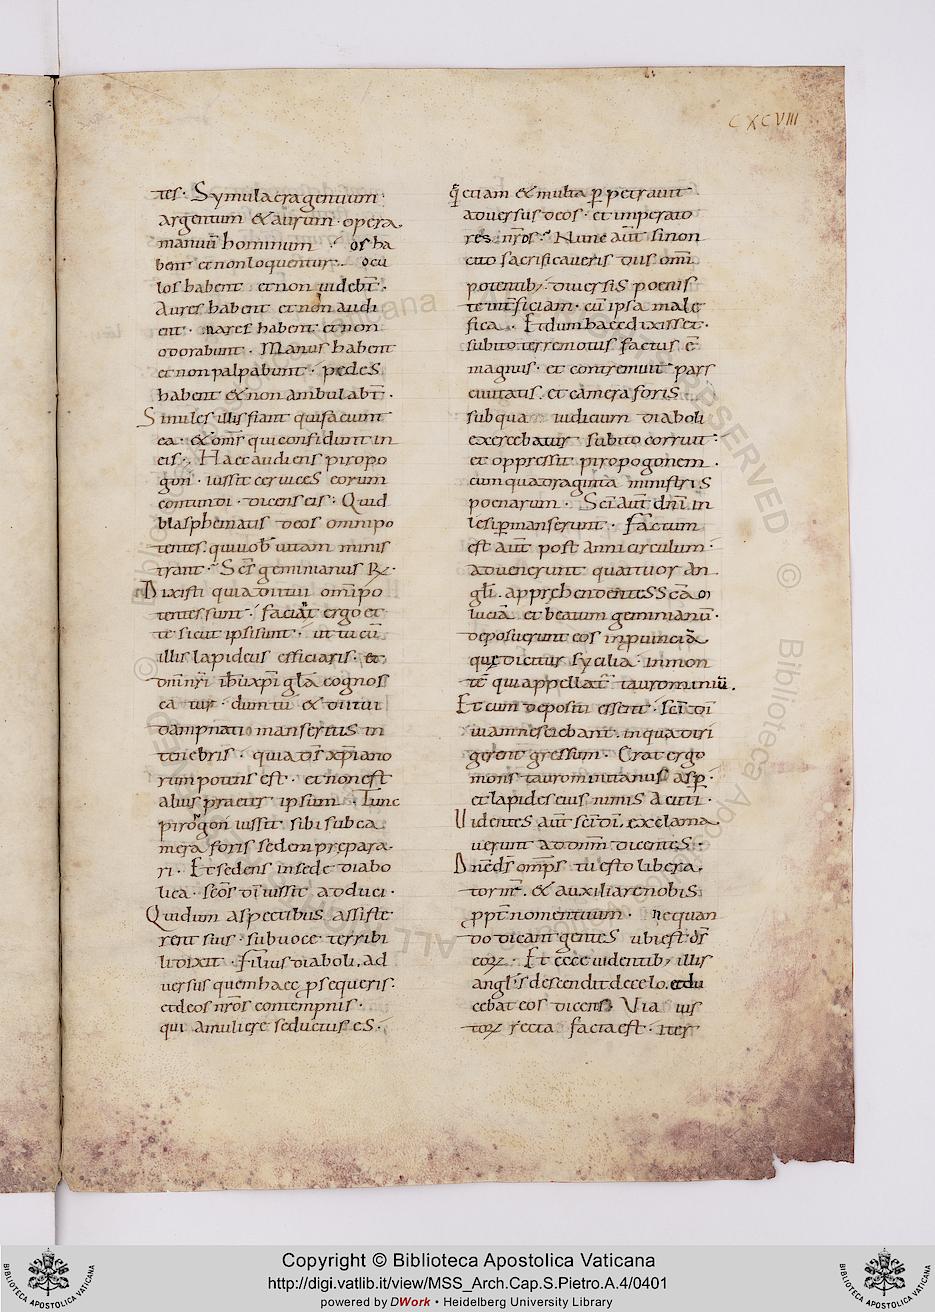 CXCVIII
tes. Symulacra gentium
argentum & aurum. opera
manuū hominum. os ha
bent et non loquentur. ocu
los habent et non uidebt̄.
Aures habent et non audi
ent. nares habent et non
odorabunt. Manus habent
et non palpabunt. pedes
habent & non ambulabt̄.
Similes illis fiant qui faciunt
ea. & om̄s qui confidunt in
eis. Haec audiens piropo
gon. iussit ceruices eorum
contundi. dicens eis. Quid
blasphematis deos omnipo
tentes. qui uob̄ uitam minis
trant. Sc̄s geminianus R̄.
Dixisti quia dii tui omīpo
tentes sunt. faciāt ergo et
te sicut ipsi sunt. ut tu cū
illis lapideus efficiaris. et
dn̄i nr̄i ihū xp̄i gl̄a cognos
catur. dum tu & dii tui
dampnati manseritis in
tenebris. quia ds̄ xp̄iano
rum potens est. et non est
alius praeter ipsum. Tunc
pirogon iussit sibi sub ca
mera foris sedem prepara
ri. Et sedens in sede diabo
lica. sc̄os dī iussit adduci.
Qui dum aspectibus assiste
rent suis. sub uoce terribi
li dixit. Filius diaboli. ad
uersus quem haec ꝑsequeris.
et deos nr̄os contempnis.
qui a muliere seductus es.
q̄ etiam & multa ꝑpetrauit
aduersus deos. et imperato
res nr̄os. Nunc aūt si non
cito sacrificaueris diis omī
potentib; diuersis poenis
te int̄ficiam. cū ipsa male
fica. Et dum haec dixisset.
subito terremotus factus ē
magnus. et contremuit pars
ciuitatis. et camera foris
sub qua iudicium diaboli
exercebatur. subito corruit.
et oppressit piropogonem.
cum quadraginta ministris
poenarum. Sc̄i aūt dn̄i in
lesi ꝑmanserunt. Factum
est aūt post anni circulum.
aduenerunt quattuor an
gli. apprehendentes sc̄ā
luciā et beatum geminianū.
deposuerunt eos in ꝓuincia
que dictus sycilia. in mon
te qui appellat̄ taurominiū.
Et cum depositi essent. sc̄i dī
uiam nesciebant. in qua diri
gerent gressum. Erat ergo
mons taurominitanus asp̄.
et lapides eius nimis acuti.
Uidentes aūt sc̄i dī. exclama
uerunt ad dn̄m dicentes.
Dn̄e ds̄ omp̄s tu esto libera
tor nr̄. & auxiliare nobis
ꝓpt̄ nomen tuum. ne quan
do dicant gentes ubi est ds̄
eoꝝ. Et ecce uidentib; illis
angl̄s descendit de celo. et du
cebat eos dicens. Via uis
toꝝ recta facta est. iter
Copyright © Biblioteca Apostolica Vaticana
http://digi.vatlib.it/view/MSS_Arch.Cap.S.Pietro.A.4/0401
powered by DWork • Heidelberg University Library